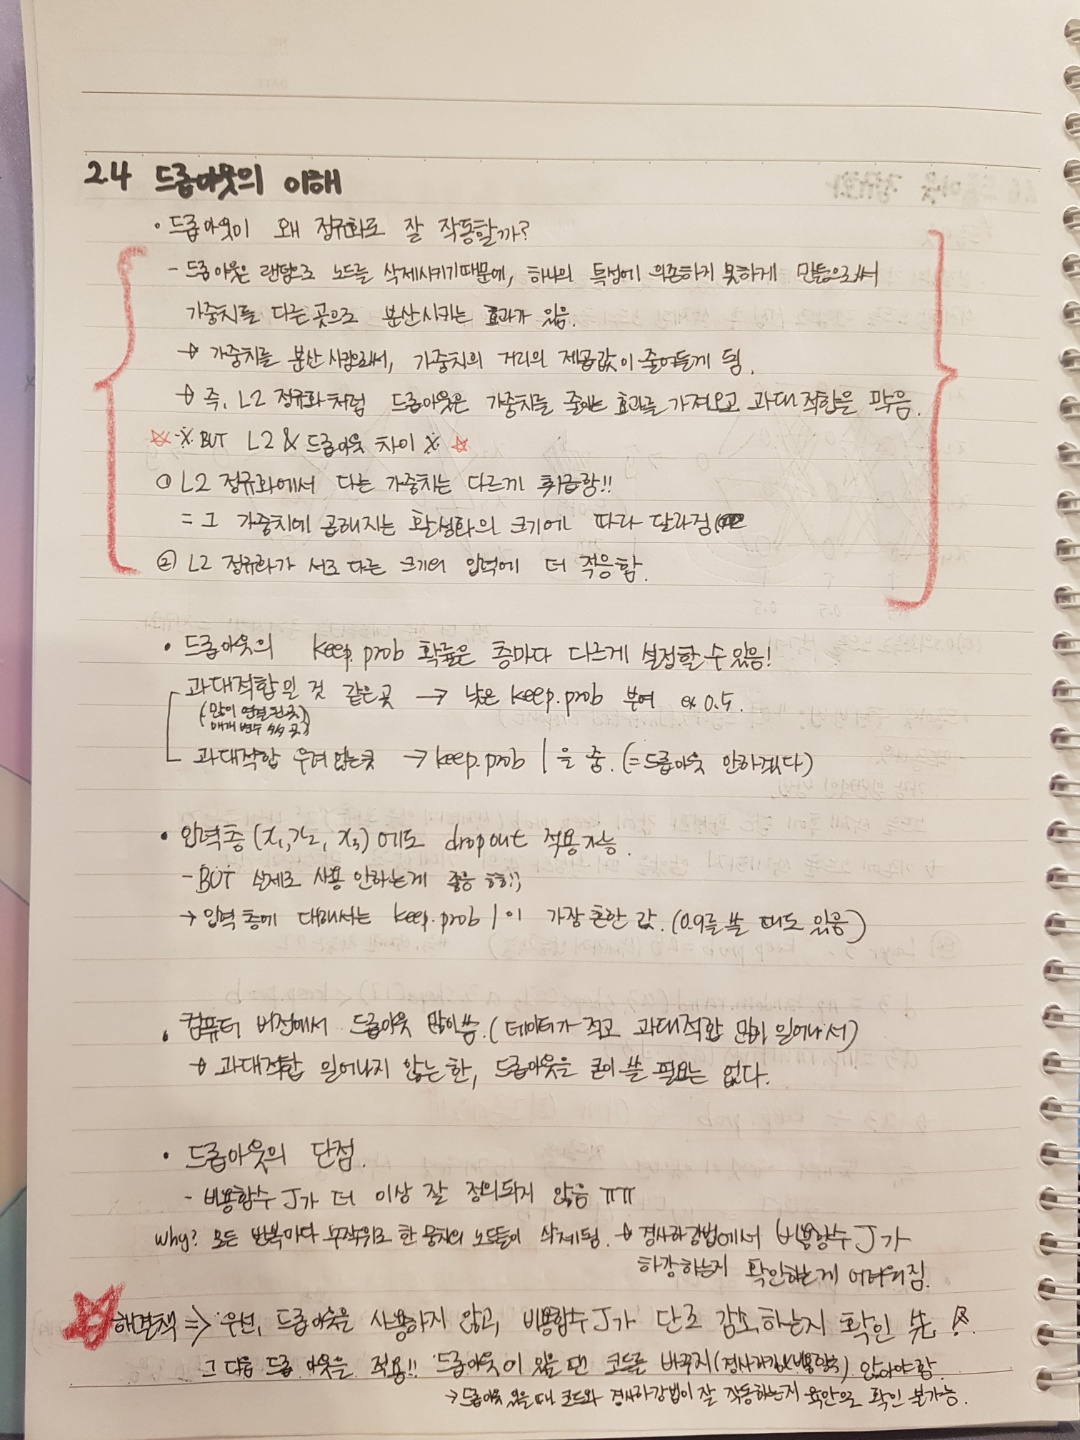 2.4 드롭아웃의 이해
• 드롭아웃이 왜 정규화로 잘 작동할까?
- 드롭아웃은 랜덤으로 노드를 삭제시키기때문에, 하나의 특성에 의존하지 못하게 만듦으로써
가중치를 다른곳으로 분산시키는 효과가 있음.
→ 가중치를 분산시킴으로써, 가중치의 거리의 제곱값이 줄어들게 됨.
→ 즉, L2 정규화처럼 드롭아웃은 가중치를 줄이는 효과를 가져오고 과대적합을 막음.
☆ ※ BUT L2 & 드롭아웃 차이 ※ ☆
① L2 정규화에서 다른 가중치는 다르게 취급함!!
= 그 가중치에 곱해지는 활성화의 크기에 따라 달라짐
② L2 정규화가 서로 다른 크기의 입력에 더 적응함.
• 드롭아웃의 keep.prob 확률은 층마다 다르게 설정할 수 있음!
과대적합일 것 같은곳 → 낮은 keep.prob 부여 ex 0.5.
(많이 연결된곳)
매개변수 많은 곳)
과대적합 우려 없는곳 → keep.prob 1을 줌. (=드롭아웃 안하겠다)
• 입력층 (x₁, x₂, x₃) 에도 dropout 적용가능.
- BUT 실제로 사용 안하는게 좋음
→ 입력층에 대해서는 keep.prob 1이 가장 흔한 값. (0.9를 쓸 때도 있음)
• 컴퓨터 비전에서 드롭아웃 많이씀. (데이터가 적고 과대적합 많이 일어나서)
→ 과대적합 일어나지 않는 한, 드롭아웃을 굳이 쓸 필요는 없다.
• 드롭아웃의 단점.
- 비용함수 J가 더 이상 잘 정의되지 않음 ㅠㅠ
why? 모든 반복마다 무작위로 한 뭉치의 노드들이 삭제됨. → 경사하강법에서 비용함수 J가
하강하는지 확인하는게 어려워짐.
☆ 해결책 ⇒ 우선, 드롭아웃을 사용하지 않고, 비용함수 J가 단조 감소하는지 확인 先
그 다음 드롭아웃을 적용!! 드롭아웃이 있을 땐 코드를 바꾸지(경사하강&비용함수) 않아야함.
→ 드롭아웃 있을때 코드와 경사하강법이 잘 작동하는지 육안으로 확인 불가능.